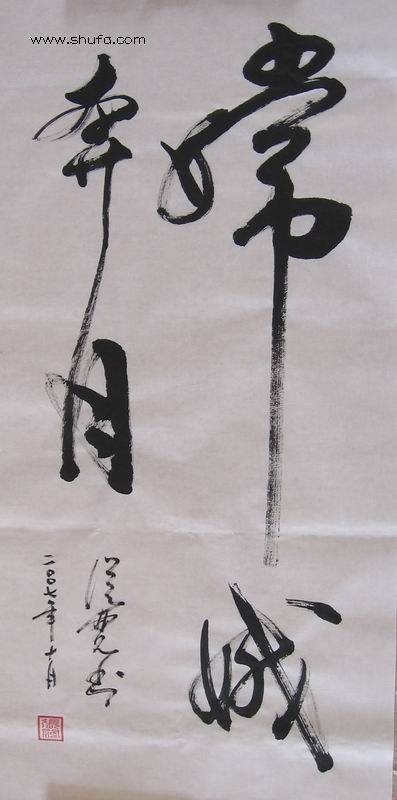 www.shufa.com
嫦娥
奔月
二〇〇七年十月